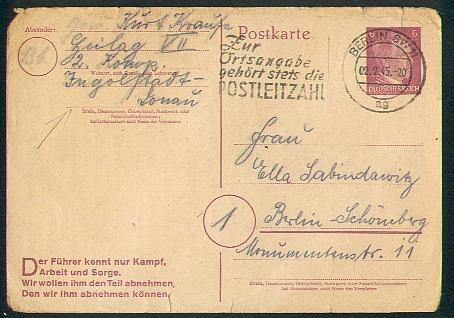 Absender:
Kurt Krause
Geilag VII
2. Komp.
Ingolstadt-
Donau
Straße, Hausnummer, Gebäudeteil, Stockwerk oder
Postschließfachnummer;
bei Untermietern auch Name des Vermieters
Postkarte
Zur
Ortsangabe
gehört stets die
POSTLEITZAHL
BERLIN SW 11
02.2.45.-20
ag
6
DEUTSCHES REICH
Frau
Ella Sabindawitz
1
Berlin-Schöneberg
Monumentenstr. 11
Straße, Hausnummer, Gebäudeteil, Stockwerk oder Postschließfachnummer;
bei Untermietern auch Name des Vermieters
Der Führer kennt nur Kampf,
Arbeit und Sorge.
Wir wollen ihm den Teil abnehmen,
Den wir ihm abnehmen können.